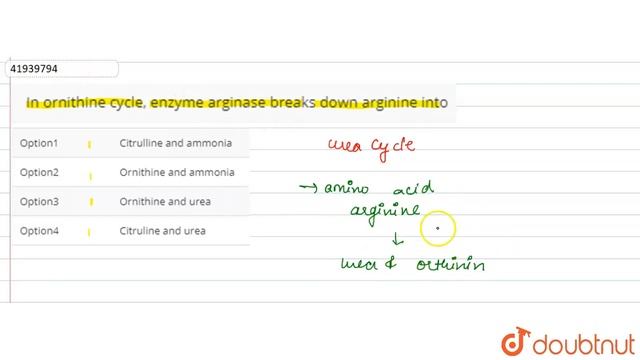 41939794
In ornithine cycle, enzyme arginase breaks down arginine into
Option1 Citrulline and ammonia
Option2 Ornithine and ammonia
Option3 Ornithine and urea
Option4 Citruline and urea
urea cycle
→ amino acid
arginine
↓
urea & orthinin
doubtnut